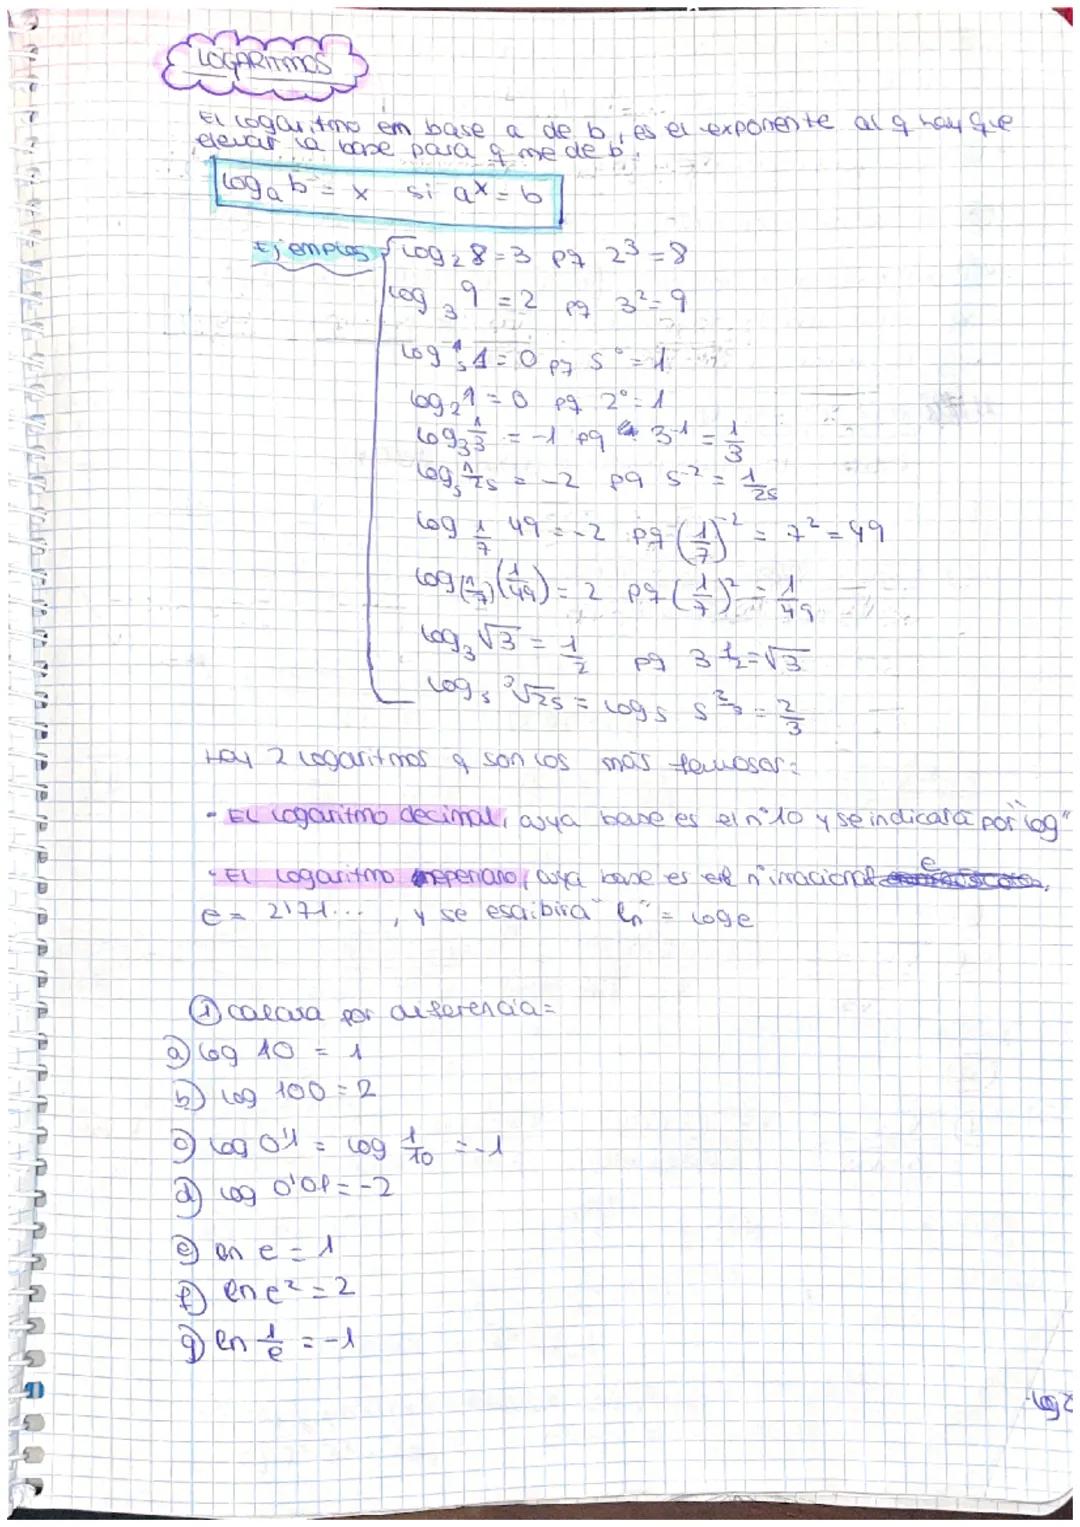 LOGARITMOS
El logaritmo em base a de b, es el exponente al q hay que
elevar la base para q me de b.
log_a b = x si a^x = b
Ejemplos log_2 8 = 3 pq 2^3 = 8
log_3 9 = 2 pq 3^2 = 9
log_5 1 = 0 pq 5^0 = 1
log_2 1 = 0 pq 2^0 = 1
log_3 1/3 = -1 pq 3^-1 = 1/3
log_5 1/25 = -2 pq 5^-2 = 1/25
log_1/7 49 = -2 pq (1/7)^-2 = 7^2 = 49
log_(1/7) (1/49) = 2 pq (1/7)^2 = 1/49
log_3 √3 = 1/2 pq 3^1/2 = √3
log_5 ³√25 = log_5 5^2/3 = 2/3
Hay 2 logaritmos q son los más famosos:
- El logaritmo decimal, cuya base es el nº 10 y se indicará por "log"
- El logaritmo neperiano, cuya base es el nº irracional e,
e = 2'71..., y se escribirá "ln" = log e
① Calcula por
a) log 10 = 1
b) log 100 = 2
c) log 0'1 = log 1/10 = -1
d) log 0'01 = -2
e) ln e = 1
f) ln e^2 = 2
g) ln 1/e = -1